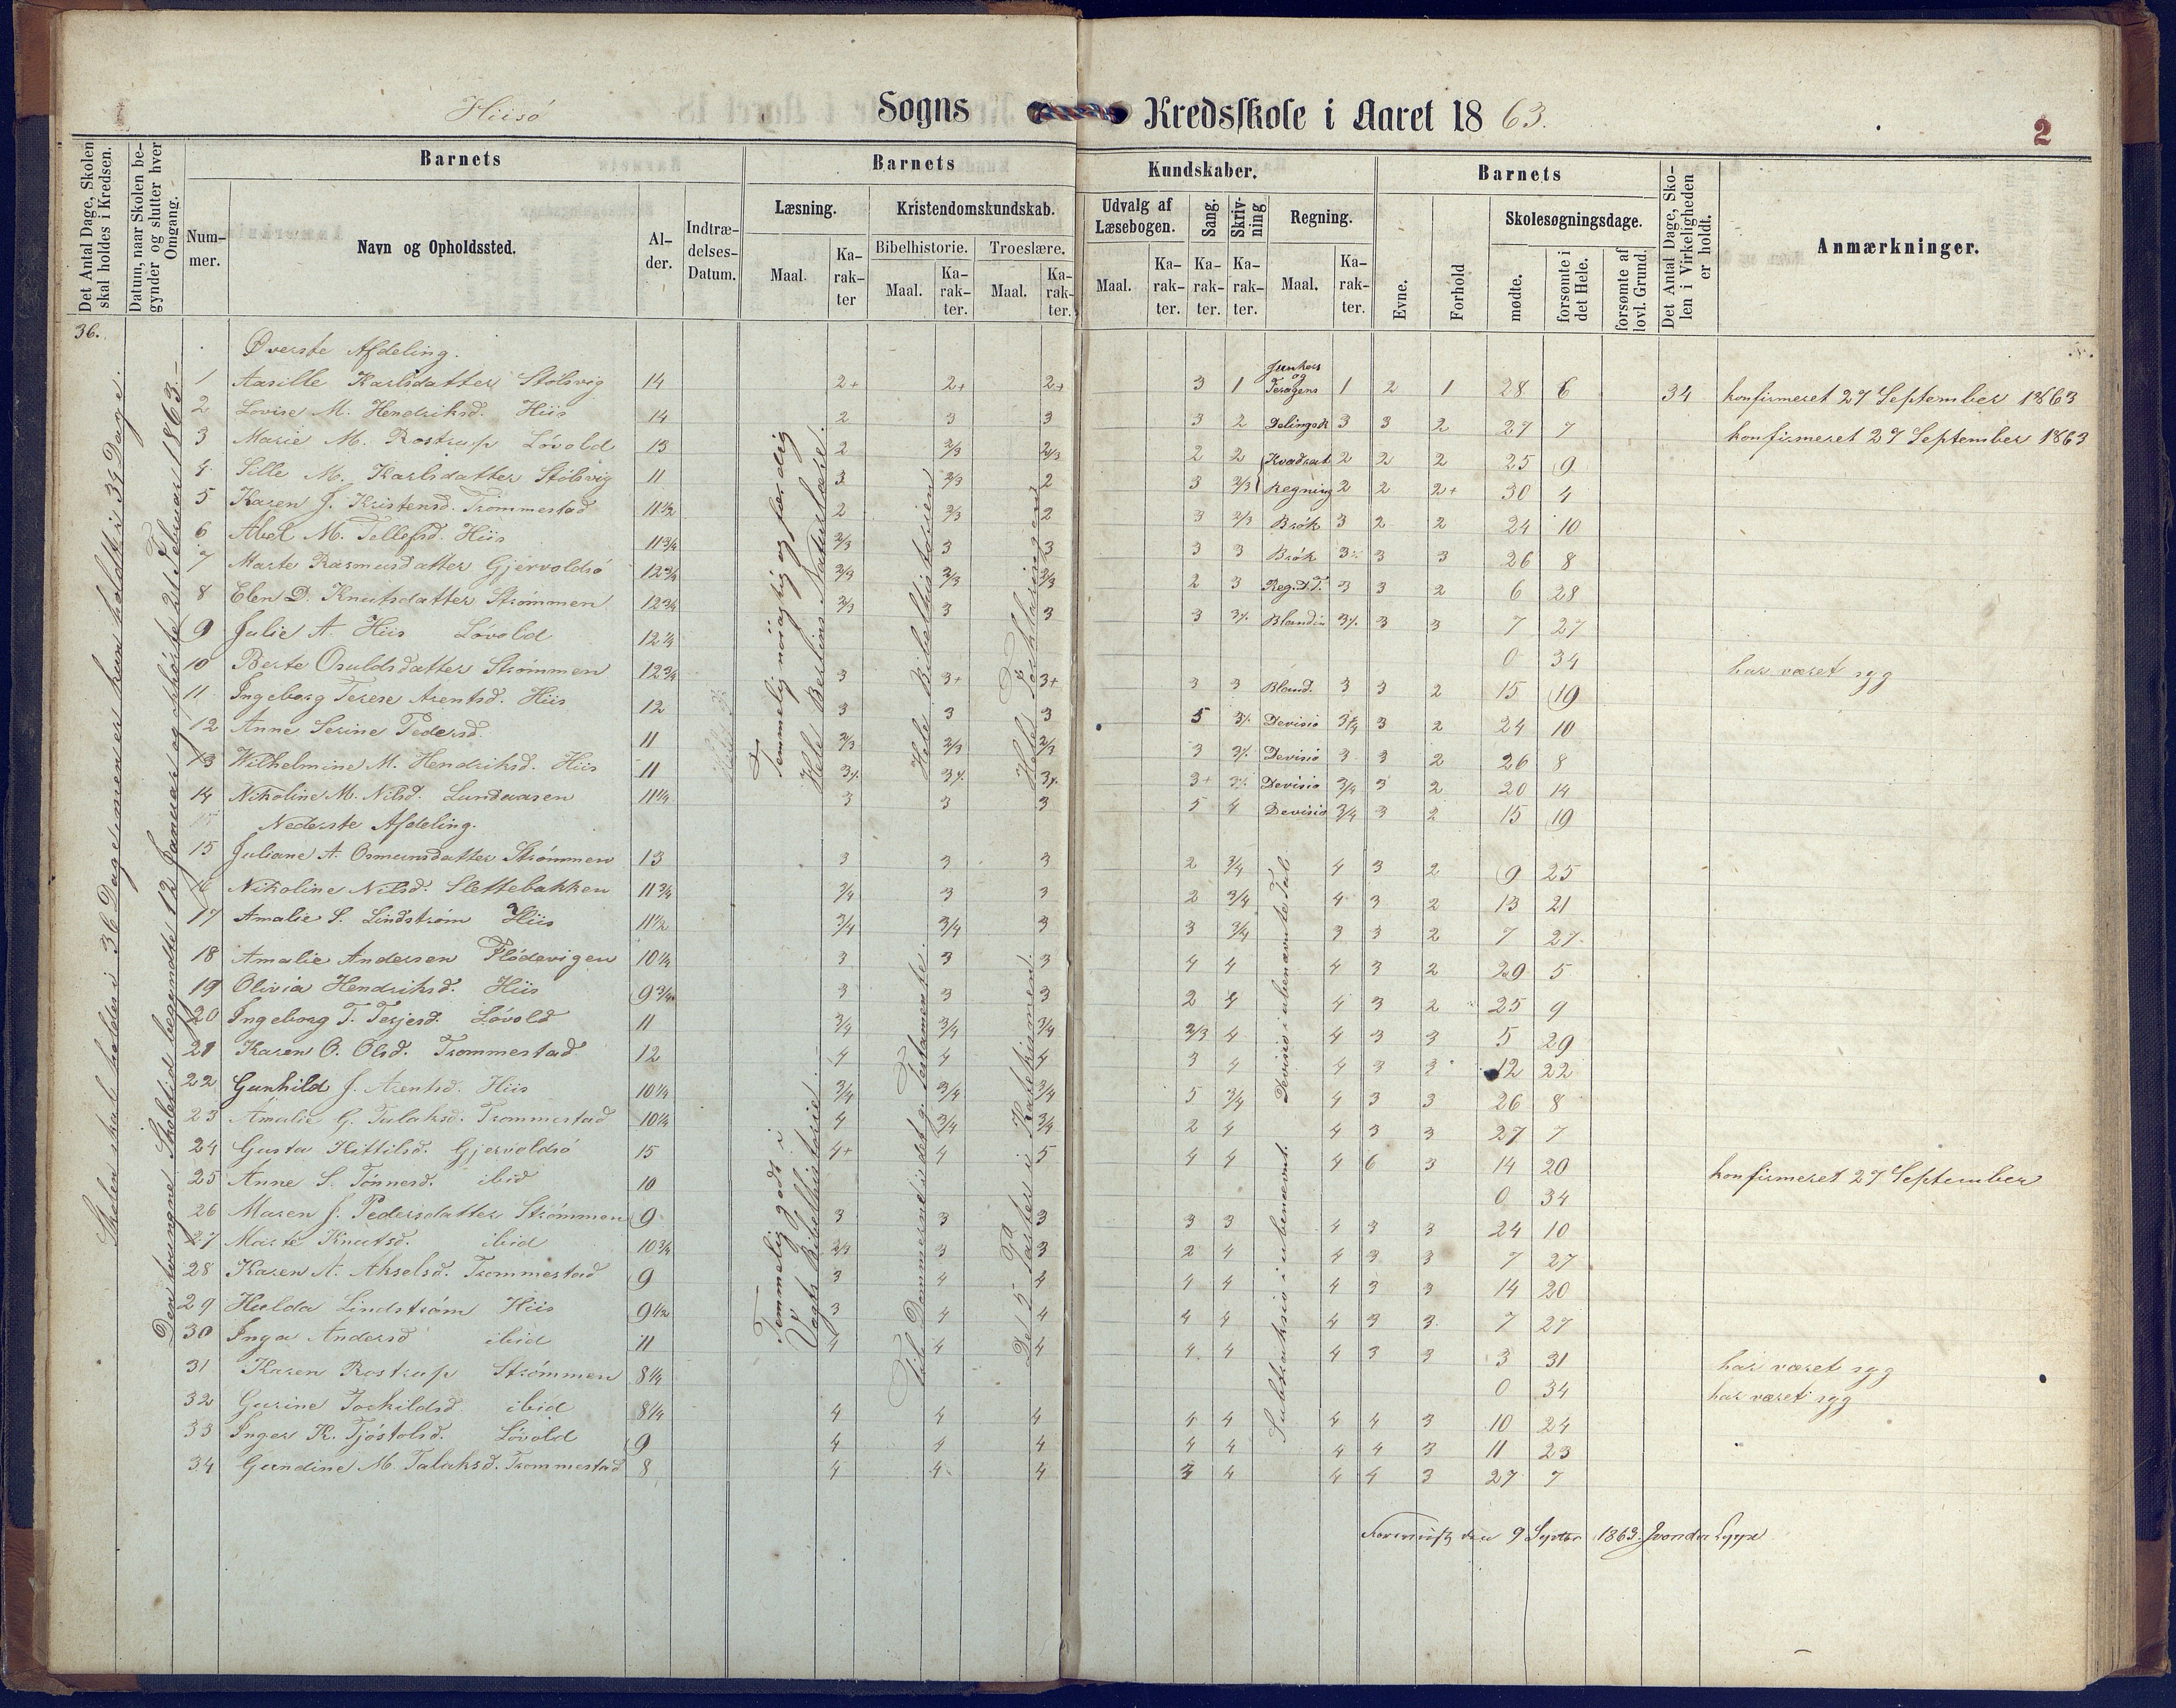 Hiisö Sogns Kredsskole i Aaret 1863.
2
Det Antal Dage, Skolen skal holdes i Kredsen.
Datum, naar Skolen begynder og slutter hver Omgang.
Barnets
Nummer.
Navn og Opholdssted.
Alder.
Indtrædelses-Datum.
Barnets Kundskaber.
Læsning.
Maal.
Karakter
Kristendomskundskab.
Bibelhistorie.
Maal.
Karakter.
Troeslære.
Maal.
Karakter.
Udvalg af Læsebogen.
Maal.
Karakter.
Sang.
Karakter.
Skrivning
Karakter.
Regning.
Maal.
Karakter.
Barnets
Evne.
Forhold
Skolesøgningsdage.
mødte.
forsømte i det Hele.
forsømte af lovl. Grund.
Det Antal Dage, Skolen i Virkeligheden er holdt.
Anmærkninger.
36.
Skolen skal holdes i 36 Dage imens er kun holdt i 34 Dage.
Den tvungne Skoletid begyndte 12 Januar og ophörte 21 Februar 1863.
Temmelig nöiagtig og færdig
Hele Bibelhistorien
Øverste Afdeling.
1 Aasille Karlsdatter Stölsvig 14 2+ 2+ 2+ 3 1 1 2 1 28 6 34 konfirmeret 27 September 1863
2 Lovise M. Hendriksd. Hiis 14 2 3 3 3 2 Delingsk 3 3 2 27 7 konfirmeret 27 September 1863
3 Marie M. Rostrup Lövold 13 2 2/3 2/3 2 2 Kvadrat 2 2 2 25 9
4 Sille M. Karlsdatter Stölsvig 11 3 2/3 2 3 2/3 Regning 2 2 2+ 30 4
5 Karen J. Kristensd. Trommestad 11 1/2 2 2/3 2 3 2/3 Brök 3 2 2 24 10
6 Abel M. Tellefsd. Hiis 11 3/4 2/3 3 3 3 3 Brök 3 3 3 26 8
7 Marte Rasmusdatter Gjervoldsö 12 3/4 2/3 2/3 2/3 2 3 Reg.d.T. 3 3 2 6 28
8 Elen D. Knutsdatter Strömmen 12 3/4 2/3 3 3 3 Blandin 3 3 7 27
9 Julie A. Hiis Lövold 12 1/4 0 34 har været syg
10 Berte Osuldsdatter Strömmen 12 3/4 3 3+ 3+ 3 3 Bland. 3 3 2 15 19
11 Ingeborg Terese Arentsd. Hiis 12 3 3 3 5 Devisio 3/4 3 2 24 10
12 Anne Serine Pedersd. 11 2/3 2/3 2/3 3 Devisio 3 3 2 26 8
13 Wilhelmine M. Hendriksd. Hiis 11 3+ Devisio 3/4 3 2 20 14
14 Nikoline M. Nilsd. Lundevasen 11 1/4 3 3 3 5 4 Devisio 3/4 3 2 15 19
Nederste Afdeling.
Temmelig godt i
Vogts Bibelhistorie.
De 5 Parter i Katekismen.
Devisio i ubenævnte Tal
Subtraksio i ubenævnt.
15 Juliane A. Osmunsdatter Strömmen 13 3 3 3 2 3/4 4 3 2 9 25
16 Nikoline Nilsd. Slettebakken 11 3/4 3/4 3 3 2 3/4 4 3 2 13 21
17 Amalie S. Lindström Hiis 11 1/2 3/4 3/4 3 3 3/4 3 3 2 7 27
18 Amalie Andersen Flödevigen 10 1/4 3 3 3 4 4 4 3 2 29 5
19 Olivia Hendriksd. Hiis 9 3/4 3 3 3 2 4 4 3 2 25 9
20 Ingeborg T. Terjesd. Lövold 11 3/4 3/4 3/4 2/3 4 4 3 3 5 29
21 Karen O. Olsd. Trommestad 12 4 4 4 3 4 4 3 3 12 22
22 Gunhild J. Arentsd. Hiis 10 1/4 3/4 3/4 3/4 5 3/4 4 3 3 26 8
23 Amalie G. Talaksd. Trommestad 10 1/4 4 3/4 3/4 2 4 4 3 3 27 7
24 Gusta Kittilsd. Gjervoldsö 15 4+ 4 5 4 4 4 6 3 14 20 konfirmeret 27 September
25 Anne S. Tönnesd. ibid 10 0 34
26 Maren J. Pedersdatter Strömmen 9 3 3 3 3 3 4 3 3 24 10
27 Marte Knutsd. ibid 10 3/4 2/3 3 3 2 4 4 3 3 7 27
28 Karen A. Akselsd. Trommestad 9 3 4 4 4 4 4 3 3 14 20
29 Hulda Lindström Hiis 9 1/2 3 4 4 4 4 4 3 3 7 27
30 Inga Andersd ibid 11 4 4 4 4 4 4 3 3 3 31 har været syg
31 Karen Rostrup Strömmen 8 1/4 0 34 har været syg
32 Gurine Torkildsd ibid 8 1/4 4 4 4 4 4 4 4 3 10 24
33 Inger K. Tjöstolsd. Lövold 9 4 4 4 4 4 4 4 3 11 23
34 Gundine M. Talaksd. Trommestad 8 4 4 4 3 4 4 4 3 27 7
9 Septbr 1863